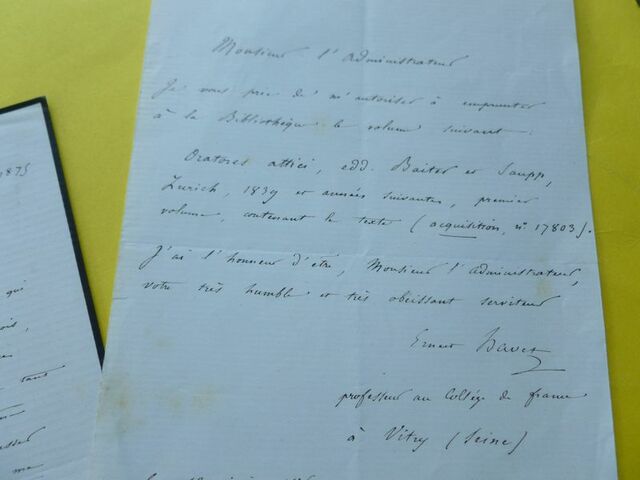 Monsieur l'administrateur
Je vous prie de m'autoriser à emprunter
à la Bibliothèque le volume suivant:
Oratores attici, edd. Baiter et Saupp,
Zurich, 1839 et années suivantes, premier
volume, contenant le texte (acquisition, n° 17803).
J'ai l'honneur d'être, Monsieur l'administrateur,
votre très humble et très obéissant serviteur
Ernest Havet
professeur au Collége de france
à Vitry (Seine)
1875
qui
tant
me